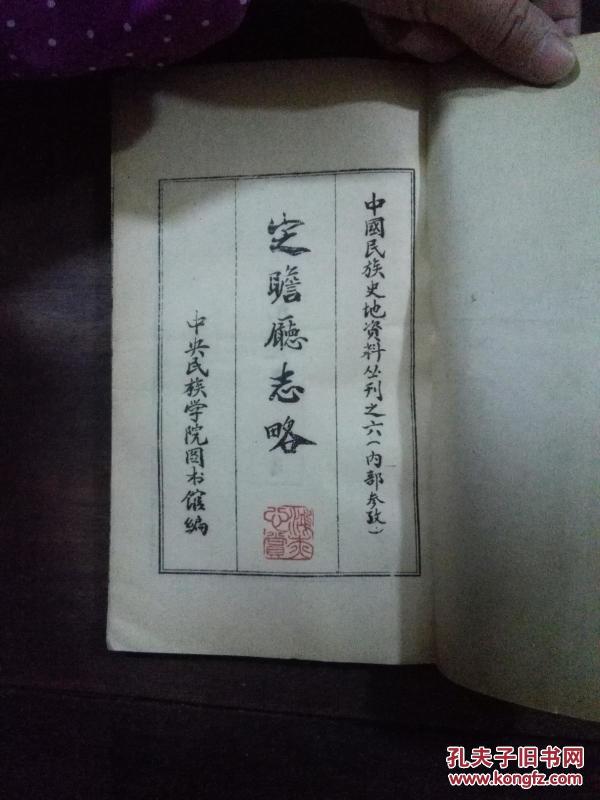 中國民族史地資料丛刊之六（内部参攷）
定瞻廳志略
中央民族学院图书馆编
孔夫子旧书网
www.kongfz.com